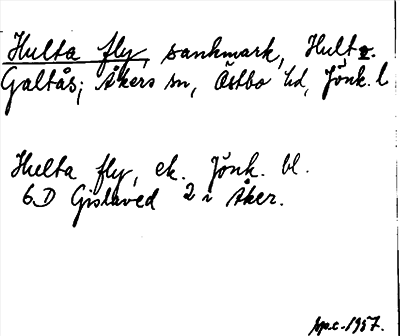 Hulta fly, sankmark, Hult o.
Galtås; Åkers sn, Östbo hd, Jönk. l
Hulta fly, ek. Jönk. bl.
6D Gislaved 2 i Åker.
1957.